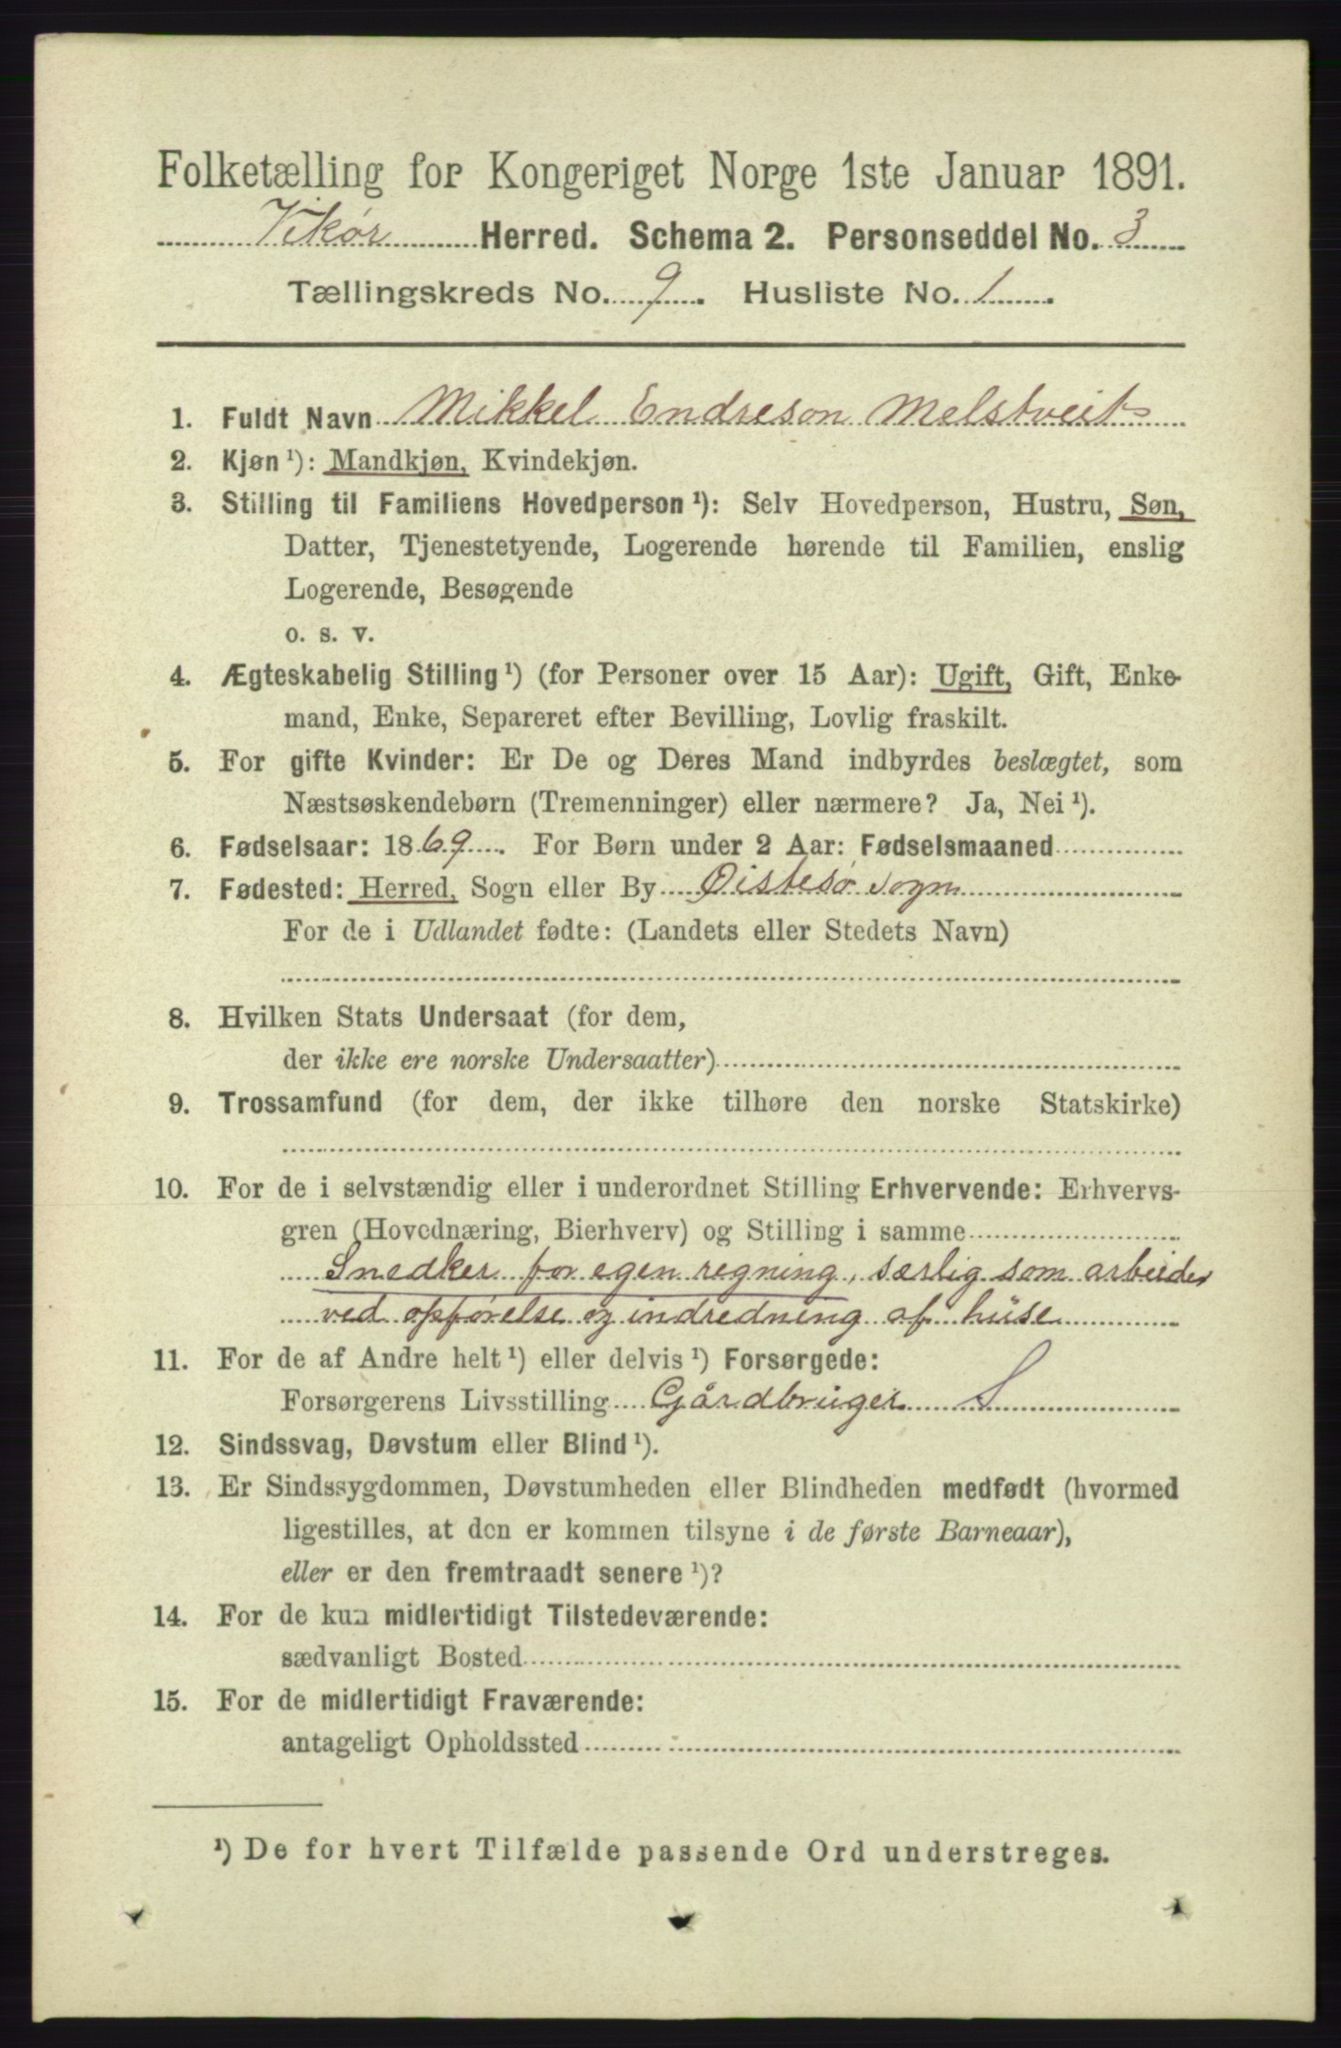 Folketælling for Kongeriget Norge 1ste Januar 1891.
Vikør Herred. Schema 2. Personseddel No. 3
Tællingskreds No. 9. Husliste No. 1.
1. Fuldt Navn Mikkel Endreson Melstveit
2. Kjøn ¹): Mandkjøn, Kvindekjøn.
3. Stilling til Familiens Hovedperson ¹): Selv Hovedperson, Hustru, Søn,
Datter, Tjenestetyende, Logerende hørende til Familien, enslig
Logerende, Besøgende
o. s. v.
4. Ægteskabelig Stilling ¹) (for Personer over 15 Aar): Ugift, Gift, Enke-
mand, Enke, Separeret efter Bevilling, Lovlig fraskilt.
5. For gifte Kvinder: Er De og Deres Mand indbyrdes beslægtet, som
Næstsøskendebørn (Tremenninger) eller nærmere? Ja, Nei ¹).
6. Fødselsaar: 1869. For Børn under 2 Aar: Fødselsmaaned
7. Fødested: Herred, Sogn eller By Øistesø sogn
For de i Udlandet fødte: (Landets eller Stedets Navn)
8. Hvilken Stats Undersaat (for dem,
der ikke ere norske Undersaatter)
9. Trossamfund (for dem, der ikke tilhøre den norske Statskirke)
10. For de i selvstændig eller i underordnet Stilling Erhvervende: Erhvervs-
gren (Hovednæring, Bierhverv) og Stilling i samme
Snedker for egen regning, særlig som arbeider
ved opførelse og indredning af huse
11. For de af Andre helt ¹) eller delvis ¹) Forsørgede:
Forsørgerens Livsstilling Gårdbruger S
12. Sindssvag, Døvstum eller Blind ¹).
13. Er Sindssygdommen, Døvstumheden eller Blindheden medfødt (hvormed
ligestilles, at den er kommen tilsyne i de første Barneaar),
eller er den fremtraadt senere ¹)?
14. For de kun midlertidigt Tilstedeværende:
sædvanligt Bosted
15. For de midlertidigt Fraværende:
antageligt Opholdssted
¹) De for hvert Tilfælde passende Ord understreges.